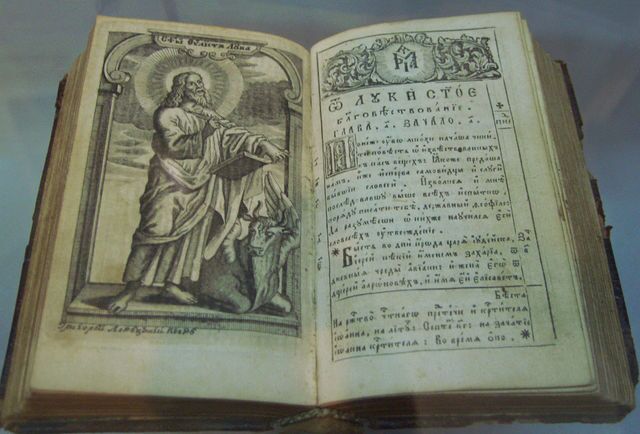 СТ҃Ы ЕѴ҃ЛИСТЪ ЛꙊКА
Ѿ ЛꙊКИ СТ҃ОЕ
БЛАГОВѢСТВОВАНІЕ.
ГЛАВА, А҃. ЗАЧАЛО, А҃.
Понеже ѹбѡ мнози начаша чини
ти повѣсть ѡ извѣствованныхъ
въ насъ вещехъ: Ꙗкоже предаша
намъ, иже исперва самовидцы и слꙋги
бывшіи словеси. Изволися и мнѣ
послѣдовавшꙋ выше всѣхъ испытнѡ,
порядꙋ писати тебѣ, державный ѳеофіле:
Да разꙋмѣеши ѡ нихже наꙋчился еси
словесѣхъ ѹтвержденіе.
*Бысть во дни ирѡда царя іꙋдейска,
іерей нѣкій именемъ захаріа, ѿ
дневныя чреды авіани: и жена егѡ ѿ
дщерій аарѡновѣхъ, и имя ей елісаветъ.
Бѣста
На рж҃тво чт҃нагѡ пр҃течи и кр҃тителя
іѡанна, на літ: Септ: кг: на зачатіе
іѡанна кр҃тителя: Во время ѻно. *